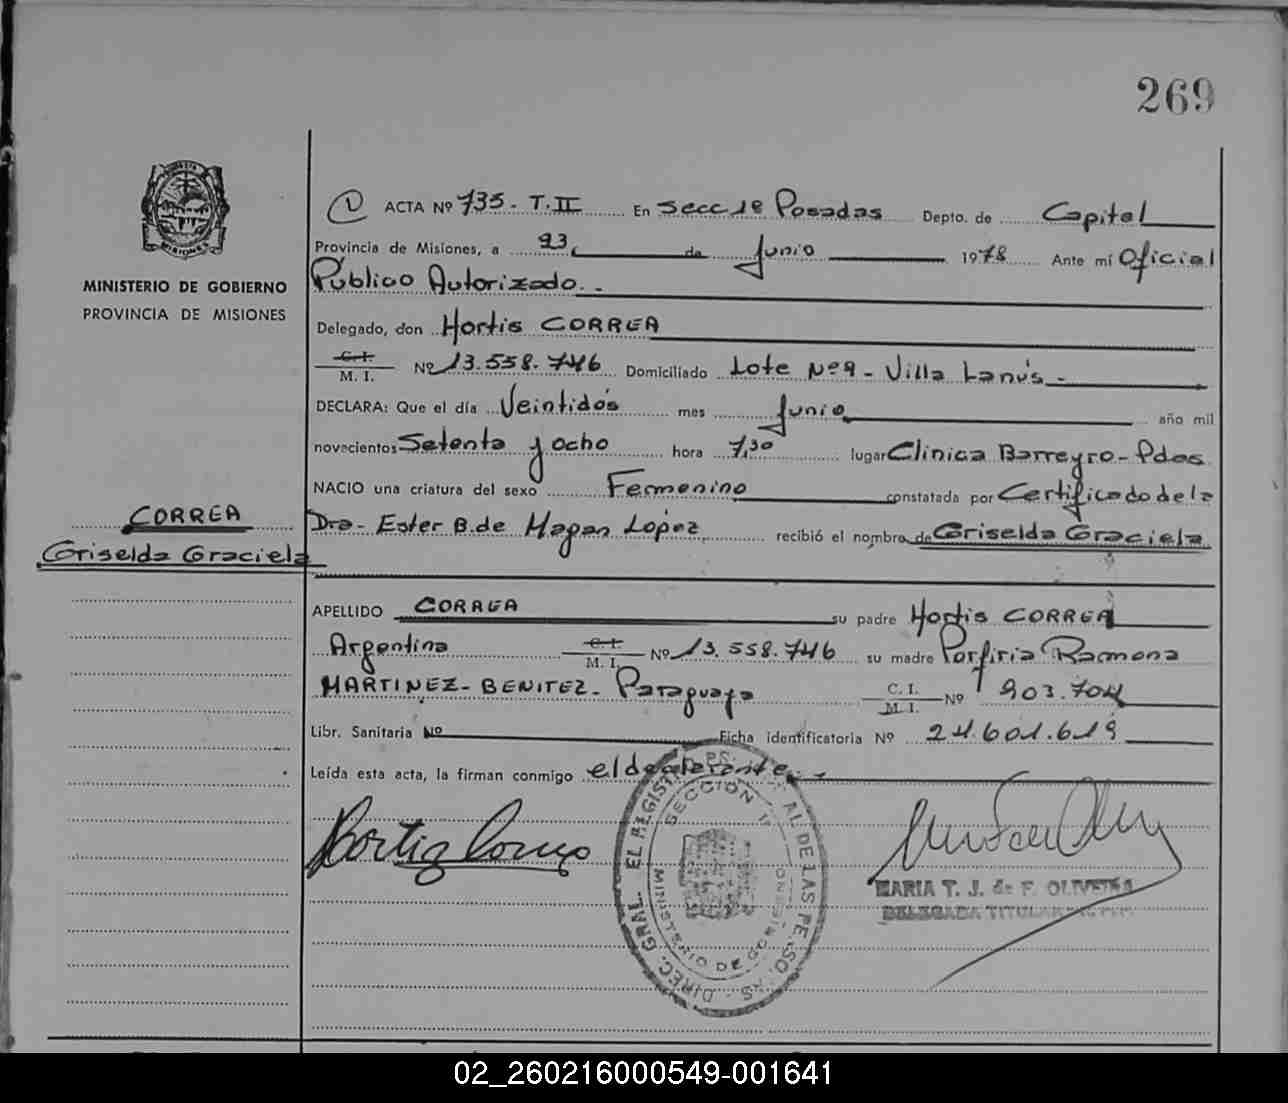 269
MINISTERIO DE GOBIERNO
PROVINCIA DE MISIONES
CORREA
Griselda Graciela
ACTA Nº 735 - T. II En Secc 1ª Posadas Depto. de Capital
Provincia de Misiones, a 23 de Junio 1978 Ante mí Oficial
Público Autorizado.-
Delegado, don Hortis CORREA
C. I. M. I. Nº 13.558.746 Domiciliado Lote Nº9 - Villa Lanús -
DECLARA: Que el día Veintidós mes Junio año mil
novecientos Setenta y ocho hora 7,30 lugar Clinica Barreyro - Pdas
NACIO una criatura del sexo Femenino constatada por Certificado de la
Dra - Ester B. de Magan Lopez recibió el nombre de Griselda Graciela
APELLIDO CORREA su padre Hortis CORREA
Argentina C. I. M. I. Nº 13.558.746 su madre Porfiria Ramona
MARTINEZ - BENITEZ - Paraguaya C. I. M. I. Nº 903.704
Libr. Sanitaria Nº Ficha identificatoria Nº 24.601.619
Leída esta acta, la firman conmigo el declarante. -
DIREC. GRAL. EL REGIST PS. AL DE LAS PE SO AS
SECCION 1ª
MINISTERIO DE GOBIERNO
MARIA T. J. de F. OLIVEIRA
DELEGADA TITULAR
02_260216000549-001641